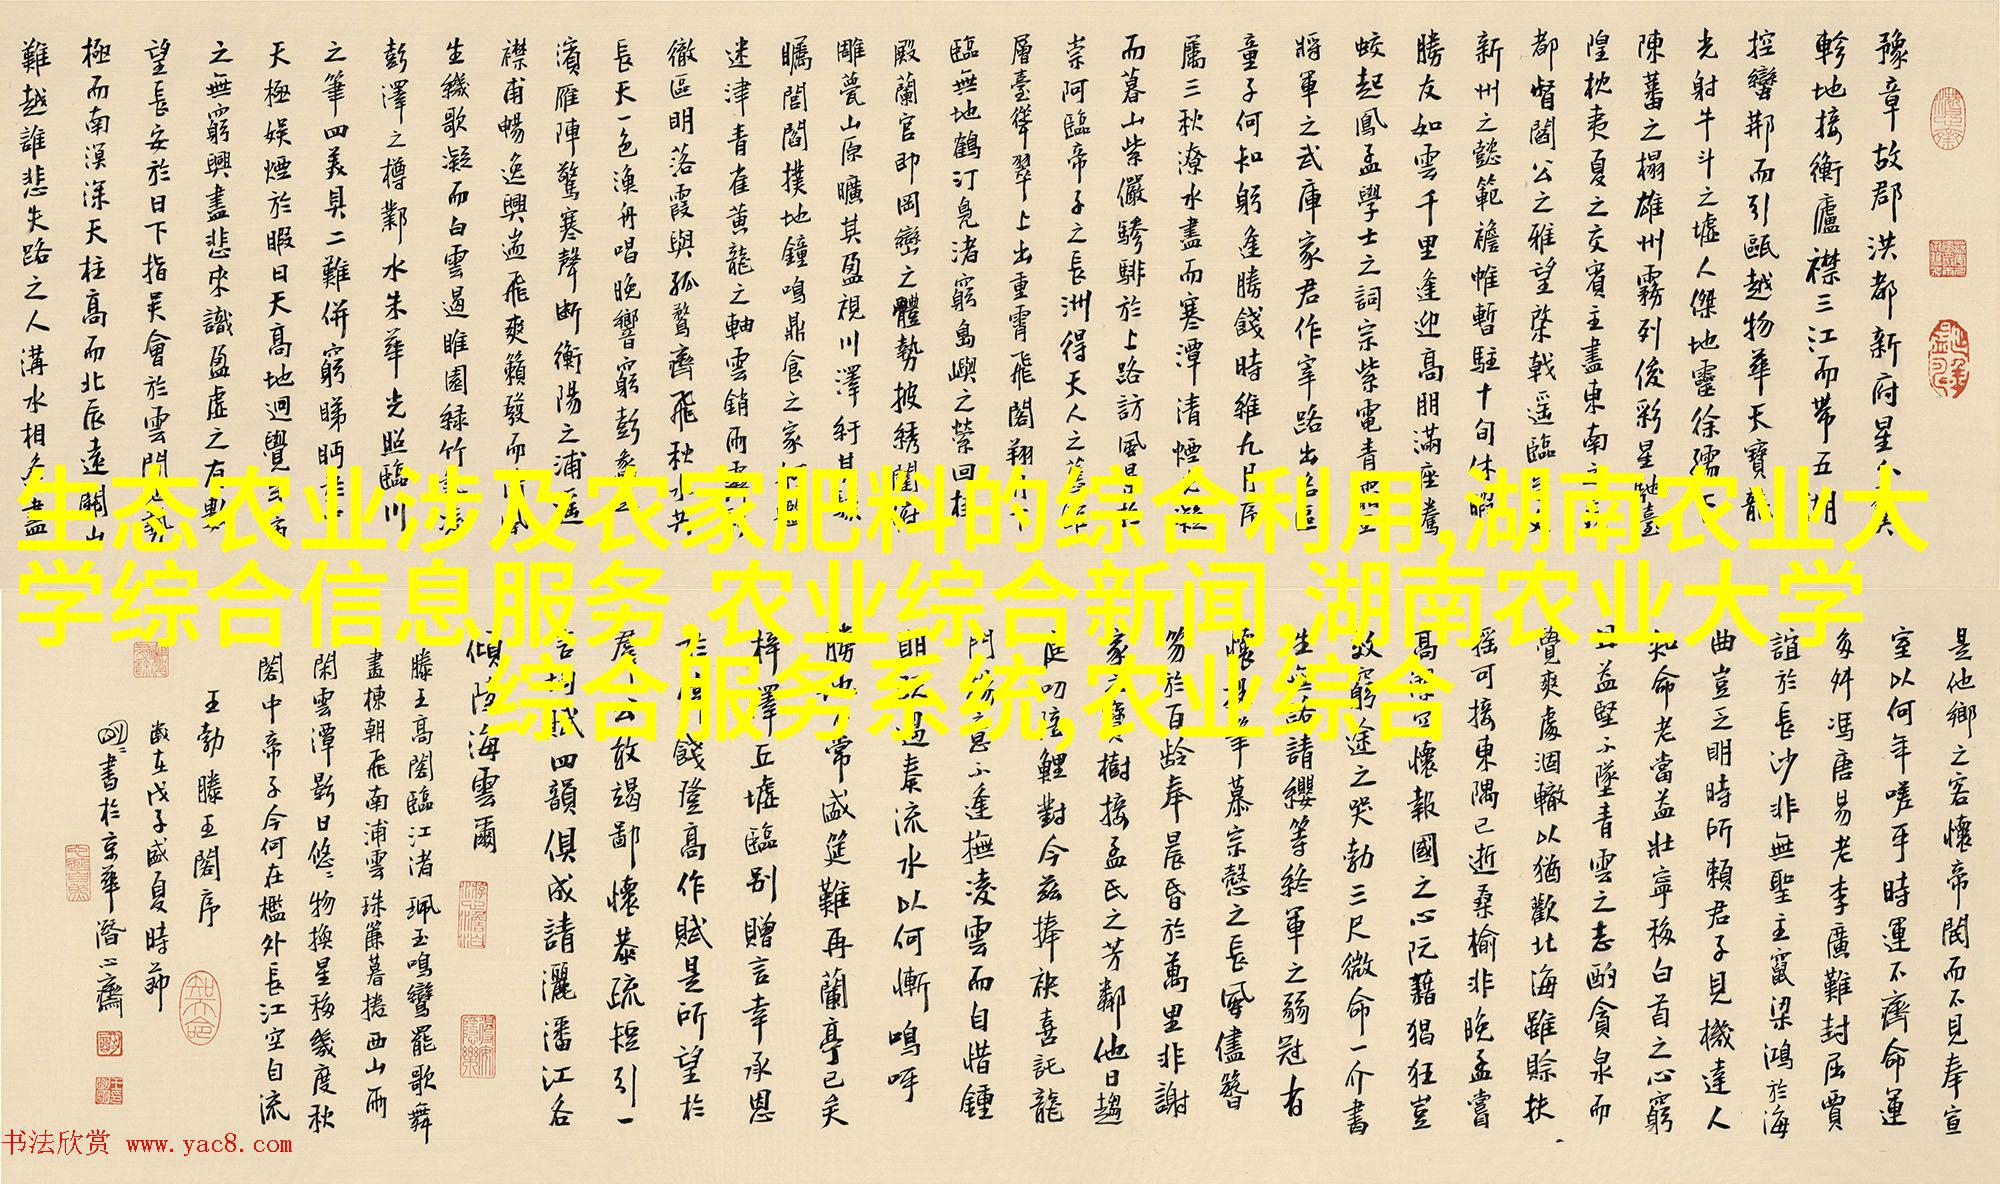 豫章故郡洪都新府星分翼
軫地接衡廬襟三江而帶五湖
控蠻荊而引甌越物華天寶龍
光射牛斗之墟人傑地靈徐孺下
陳蕃之榻雄州霧列俊彩星馳臺
隍枕夷夏之交賓主盡東南之
都督閻公之雅望棨戟遥臨
新州之懿範襜帷暫駐十旬休暇
勝友如雲千里逢迎高朋滿座騰
蛟起鳳孟學士之詞宗紫電青
將軍之武庫家君作宰路出名區
童子何知躬逢勝餞時維九月序
屬三秋潦水盡而寒潭清煙光凝
而暮山紫儼驂騑於上路訪風景於
崇阿臨帝子之長洲得天人之舊館
層臺聳翠上出重霄飛閣翔丹下
臨無地鶴汀凫渚窮島嶼之縈回桂
殿蘭宫即岡巒之體勢披綉闥俯
雕甍山原曠其盈視川澤紆其
矚閭閻撲地鐘鳴鼎食之家
迷津青雀黄龍之軸雲銷雨
徹區明落霞與孤鶩齊飛秋水共
長天一色漁舟唱晚響窮彭蠡之
濱雁陣驚寒聲斷衡陽之浦遥
襟甫暢逸興遄飛爽籟發而
生纖歌凝而白雲遏睢園緑竹
彭澤之樽鄴水朱華光照臨川
之筆四美具二難併窮睇眄於
天極娱煙於暇日天高地迥覺宇宙
之無窮興盡悲來識盈虚之有數
望長安於日下指吴會於雲間地勢
極而南溟深天柱高而北辰遠關山
難越誰悲失路之人溝水相逢盡
生态农业涉及农家肥料的综合利用,湖南农业大
学综合信息服务,农业综合新闻,湖南农业大学
综合服务系统,农业综合
是他鄉之客懷帝閽而不見奉宣
室以何年嗟乎時運不齊命運
多舛馮唐易老李廣難封屈賈
誼於長沙非無聖主竄梁鴻於海
曲豈乏明時所賴君子見機達人
知命老當益壯寧移白首之心窮
且益堅不墜青雲之志酌貪泉而
覺爽處涸轍以猶歡北海雖賒扶
摇可接東隅已逝桑榆非晚孟嘗
高潔空懷報國之心阮藉猖狂豈
效窮途之哭勃三尺微命一介書
生無路請纓等終軍之弱冠有
懷投筆慕宗慤之長風儘簪
笏於百齡奉晨昏於萬里非謝
家之寶樹接孟氏之芳鄰他日趨
庭叨陪鯉對今兹捧袂喜託龍
門楊意不逢撫凌雲而自惜鍾
期既遇奏流水以何慚鳴呼
勝地不常盛筵難再蘭亭已矣
梓澤丘墟臨别贈言幸承恩
於偉餞登高作賦是所望於
羣公敢竭鄙懷恭疏短引一
言均賦四韻俱成請灑潘江各
傾陸海雲爾
滕王高閣臨江渚珮玉鳴鸞罷歌舞
畫棟朝飛南浦雲珠簾暮捲西山雨
閑雲潭影日悠悠物換星移幾度秋
閣中帝子今何在檻外長江空自流
王勃滕王閣序
歲在戊子盛夏時節
書於京華潛心齋
书法欣赏 www.yac8.com